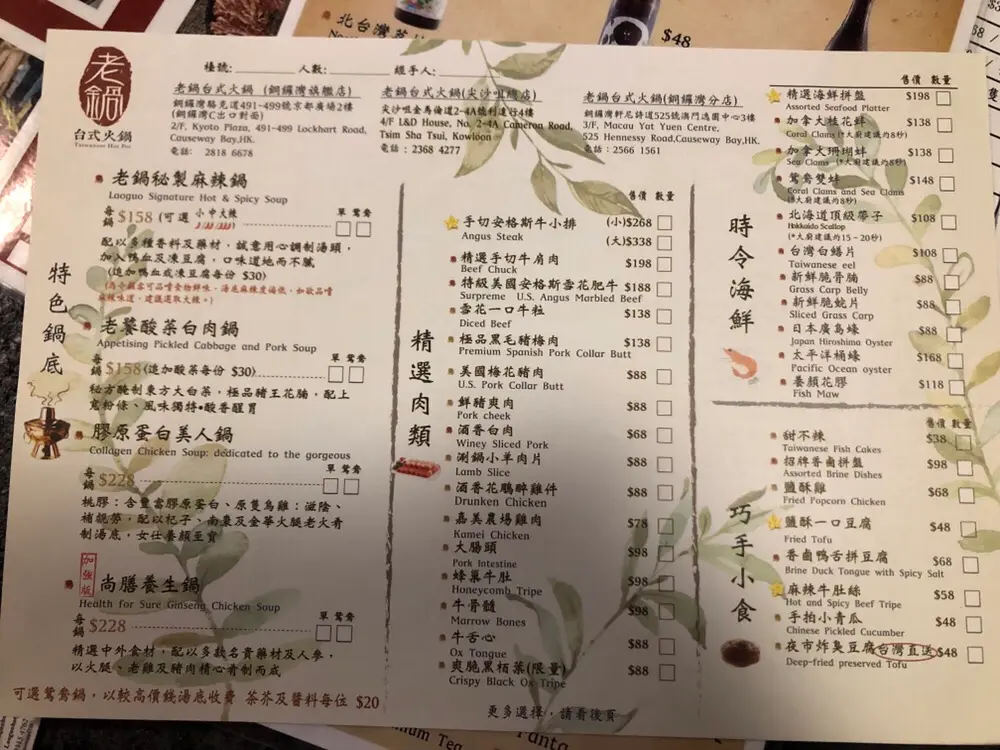 北台灣
$48
老鍋
台式火鍋
Taiwanese Hot Pot
檯號:________人數:________ 經手人:________
老鍋台式火鍋 (銅鑼灣旗艦店)
銅鑼灣駱克道491-499號京都廣場2樓
(銅鑼灣C出口對面)
2/F, Kyoto Plaza, 491-499 Lockhart Road,
Causeway Bay,HK.
電話: 2818 6678
老鍋台式火鍋(尖沙咀總店)
尖沙咀金馬倫道2-4A號利達行4樓
4/F L&D House, No. 2-4A Cameron Road,
Tsim Sha Tsui, Kowloon
電話 : 2368 4277
老鍋台式火鍋(銅鑼灣分店)
銅鑼灣軒尼詩道525號澳門逸園中心3樓
3/F, Macau Yat Yuen Centre,
525 Hennessy Road,Causeway Bay,HK.
電話 : 2566 1561
特色鍋底
老鍋秘製麻辣鍋
Laoguo Signature Hot & Spicy Soup
單 鴛鴦
每鍋 $158 (可選 小中大辣
配以多種香料及藥材,誠意用心調制湯頭,
加入鴨血及凍豆腐,口味道地而不膩
(追加鴨血或凍豆腐每份 $30)
老饕酸菜白肉鍋
Appetising Pickled Cabbage and Pork Soup
單 鴛鴦
每鍋 $158(追加酸菜每份 $30)
秘方醃制東方大白菜,極品豬王花腩,配上
寬粉條、風味獨特•酸香醒胃
膠原蛋白美人鍋
Collagen Chicken Soup: dedicated to the gorgeous
單 鴛鴦
每鍋 $228
桃膠:含豐富膠原蛋白、原隻烏雞:滋陰、
補虧勞,配以杞子、南棗及金華火腿老火肴
制湯底,女仕養顏至寶
加強版
尚膳養生鍋
Health for Sure Ginseng Chicken Soup
單 鴛鴦
每鍋 $228
精選中外食材,配以多款名貴藥材及人參,
以火腿、老雞及豬肉精心肴制而成
可選鴛鴦鍋,以較高價錢湯底收費 茶芥及醬料每位 $20
精選肉類
售價 數量
手切安格斯牛小排 (小)$268
Angus Steak (大)$338
精選手切牛肩肉 $198
Beef Chuck
特級美國安格斯雪花肥牛 $188
Surpreme U.S. Angus Marbled Beef
雪花一口牛粒 $138
Diced Beef
極品黑毛豬梅肉 $138
Premium Spanish Pork Collar Butt
美國梅花豬肉 $88
U.S. Pork Collar Butt
鮮豬爽肉 $88
Pork cheek
酒香白肉 $68
Winey Sliced Pork
涮鍋小羊肉片 $88
Lamb Slice
酒香花鵰醉雞件 $88
Drunken Chicken
嘉美農場雞肉 $78
Kamei Chicken
大腸頭 $98
Pork Intestine
蜂巢牛肚 $98
Honeycomb Tripe
牛骨髓 $98
Marrow Bones
牛舌心 $88
Ox Tongue
爽脆黑栢葉(限量) $88
Crispy Black Ox Tripe
更多選擇,請看後頁
時令海鮮
售價 數量
精選海鮮拼盤 $198
Assorted Seafood Platter
加拿大桂花蚌 $138
Coral Clams (*大廚建議約8秒)
加拿大珊瑚蚌 $138
Sea Clams (*大廚建議約8秒)
鴛鴦雙蚌 $148
Coral Clams and Sea Clams
(*大廚建議約8秒)
北海道頂級帶子 $108
Hokkaido Scallop
(*大廚建議約15-20秒)
台灣白鱔片 $108
Taiwanese eel
新鮮脆骨腩 $88
Grass Carp Belly
新鮮脆鯇片 $88
Sliced Grass Carp
日本廣島蠔 $88
Japan Hiroshima Oyster
太平洋桶蠔 $168
Pacific Ocean oyster
養顏花膠 $118
Fish Maw
巧手小食
售價 數量
甜不辣 $38
Taiwanese Fish Cakes
招牌香鹵拼盤 $98
Assorted Brine Dishes
鹽酥雞 $68
Fried Popcorn Chicken
鹽酥一口豆腐 $48
Fried Tofu
香鹵鴨舌拼豆腐 $68
Brine Duck Tongue with Spicy Salt
麻辣牛肚絲 $58
Hot and Spicy Beef Tripe
手拍小青瓜 $48
Chinese Pickled Cucumber
夜市炸臭豆腐 台灣直送 $48
Deep-fried preserved Tofu